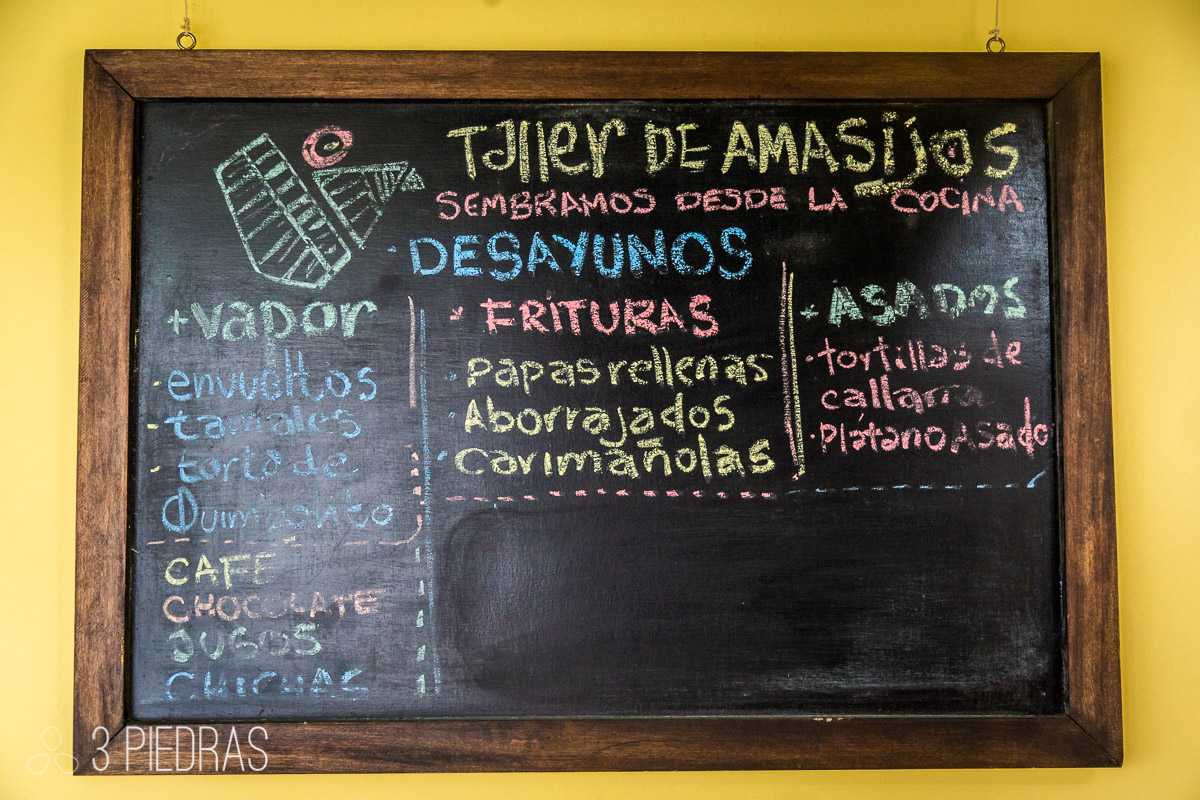 Taller DE AMASijos
SEMBRAMOS DESDE LA COCINA
DESAYUNOS
+ vapor
envueltos
tamales
torta de
CAFE
CHOCOLATE
JUGOS
CHICHAS
FRITURAS
papas rellenas
Aborrajados
Carimañolas
+ ASADOS
tortillas de
callarra
Plátano Asado
3 PIEDRAS